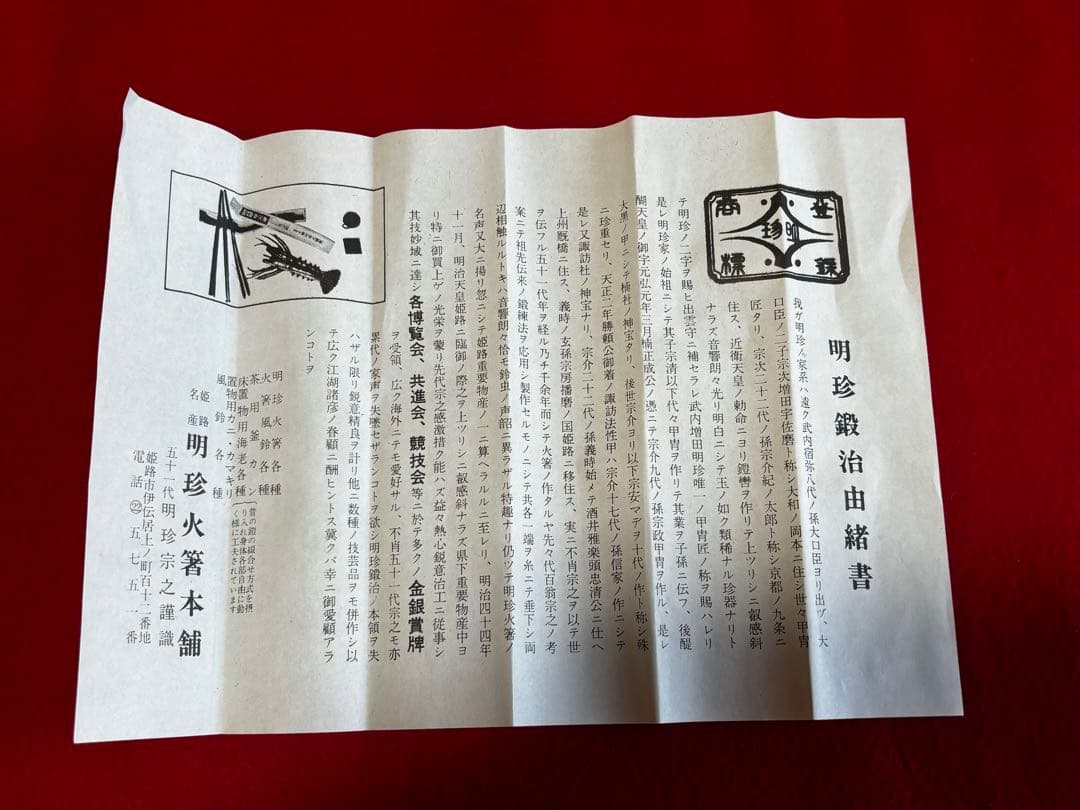 登録
商標
明珍
明珍鍛治由緒書
我ガ明珍ノ家系ハ遠ク武内宿弥八代ノ孫大口臣ヨリ出ヅ、大
口臣ノ二子宗次増田宇佐磨ト称シ大和ノ岡本ニ住シ世々甲冑
匠タリ、宗次二十二代ノ孫宗介紀ノ太郎ト称シ京都ノ九条ニ
住ス、近衛天皇ノ勅命ニヨリ鎧轡ヲ作リテ上ツリシニ叡感斜
ナラズ音響朗々光リ明白ニシテ玉ノ如ク類稀ナル珍器ナリト
テ明珍ノ二字ヲ賜ヒ出雲守ニ補セラレ武内増田明珍唯一ノ甲冑匠ノ称ヲ賜ハレリ
是レ明珍家ノ始祖ニシテ其子宗清以下代々甲冑ヲ作リテ其業ヲ子孫ニ伝フ、後醍
醐天皇ノ御宇元弘元年三月楠正成公ノ憑ニテ宗介九代ノ孫宗政甲冑ヲ作ル、是レ
大黒ノ甲ニシテ楠社ノ神宝タリ、後世宗介ヨリ以下宗安マデヲ十代ノ作ト称シ殊
ニ珍重セリ、天正二年勝頼公御着ノ諏訪法性甲ハ宗介十七代ノ孫信家ノ作ニシテ
是レ又諏訪社ノ神宝ナリ、宗介二十二代ノ孫義時始メテ酒井雅楽頭忠清公ニ仕ヘ
上州厩橋ニ住ス、義時ノ玄孫宗房播磨ノ国姫路ニ移住ス、実ニ不肖宗之ヲ以テ世
ヲ伝フル五十一代年ヲ経ル乃チ千余年而シテ火箸ノ作タルヤ先々代百翁宗之ノ考
案ニテ祖先伝来ノ鍛練法ヲ応用シ製作セルモノニシテ共各一端ヲ糸ニテ垂下シ両
辺相触ルルトキハ音響朗々恰モ鈴虫ノ声韶ニ異ラザル特趣ナリ仍ツテ明珍火箸ノ
名声又大ニ揚リ忽ニシテ姫路重要物産ノ一ニ算ヘラルルニ至レリ、明治四十四年
十一月、明治天皇姫路ニ臨御ノ際之ヲ上ツリシニ叡感斜ナラズ県下重要物産中ヨ
リ特ニ御買上ゲノ光栄ヲ蒙リ先代宗之感激措ク能ハズ益々熱心鋭意治工ニ従事シ
其技妙域ニ達シ各博覧会、共進会、競技会等ニ於テ多クノ金銀賞牌
ヲ受領、広ク海外ニテモ愛好サル、不肖五十一代宗之モ亦
累代ノ家声ヲ失墜セザランコトヲ欲シ明珍鍛治ノ本領ヲ失
ハザル限リ鋭意精良ヲ計リ他ニ数種ノ技芸品ヲモ併作シ以
テ広ク江湖諸彦ノ眷顧ニ酬ヒントス冀クバ幸ニ御愛顧アラ
ンコトヲ
明珍火箸各種
火箸風鈴各種
茶用釜カン
床置物用海老各種
置物用カニ・カマキリ
風鈴各種
昔の鎧の綴合せ方式を摂
り入れ身体各部自由に動
く様に工夫されています
姫路
名産
明珍火箸本舗
五十一代明珍宗之謹識
姫路市伊伝居上ノ町百十二番地
電話㉒五七五一番